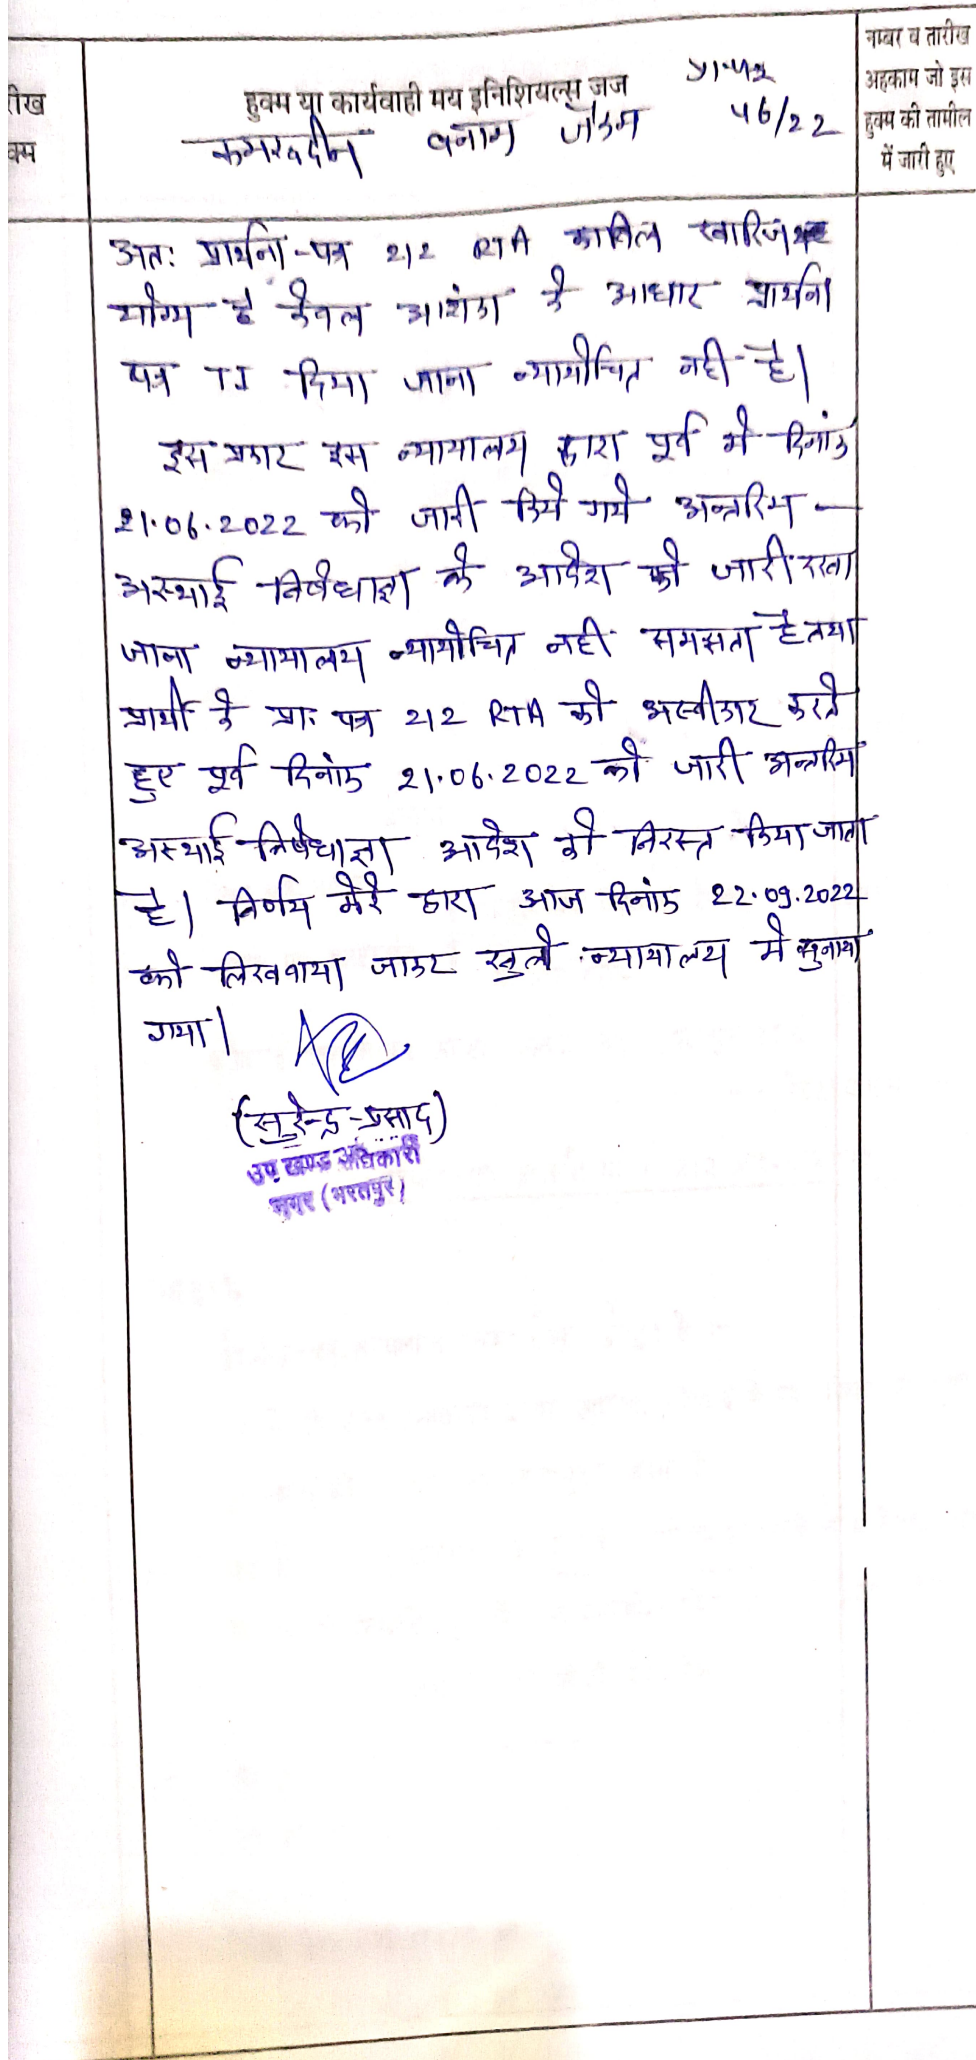 रीख
क्म
हुक्म या कार्यवाही मय इनिशियल्स जज
प्रा.पत्र
46/22
कमरूद्दीन बनाम जैकम
नम्बर व तारीख
अहकाम जो इस
हुक्म की तामील
में जारी हुए
अतः प्रार्थना-पत्र 212 RTA काबिल खारिज
योग्य है केवल आशंका के आधार प्रार्थना
पत्र TI दिया जाना न्यायोचित नही है।
इस प्रकार इस न्यायालय द्वारा पूर्व मे दिनांक
21.06.2022 को जारी किये गये अन्तरिम -
अस्थाई निषेधाज्ञा के आदेश को जारी रखा
जाना न्यायालय न्यायोचित नही समझता है तथा
प्रार्थी के प्रा. पत्र 212 RTA को अस्वीकार करते
हुए पूर्व दिनांक 21.06.2022 को जारी अन्तरिम
अस्थाई निषेधाज्ञा आदेश को निरस्त किया जाता
है। निर्णय मेरे द्वारा आज दिनांक 22.09.2022
को लिखवाया जाकर खुले न्यायालय मे सुनाया
गया।
(सुरेन्द्र प्रसाद)
उप खण्ड अधिकारी
नगर (भरतपुर)